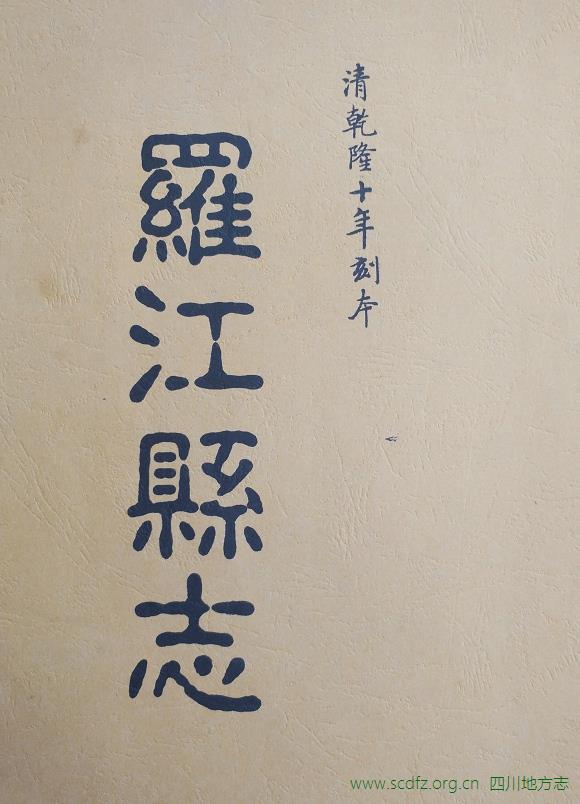 清乾隆十年刻本
羅江縣志
www.scdfz.org.cn 四川地方志